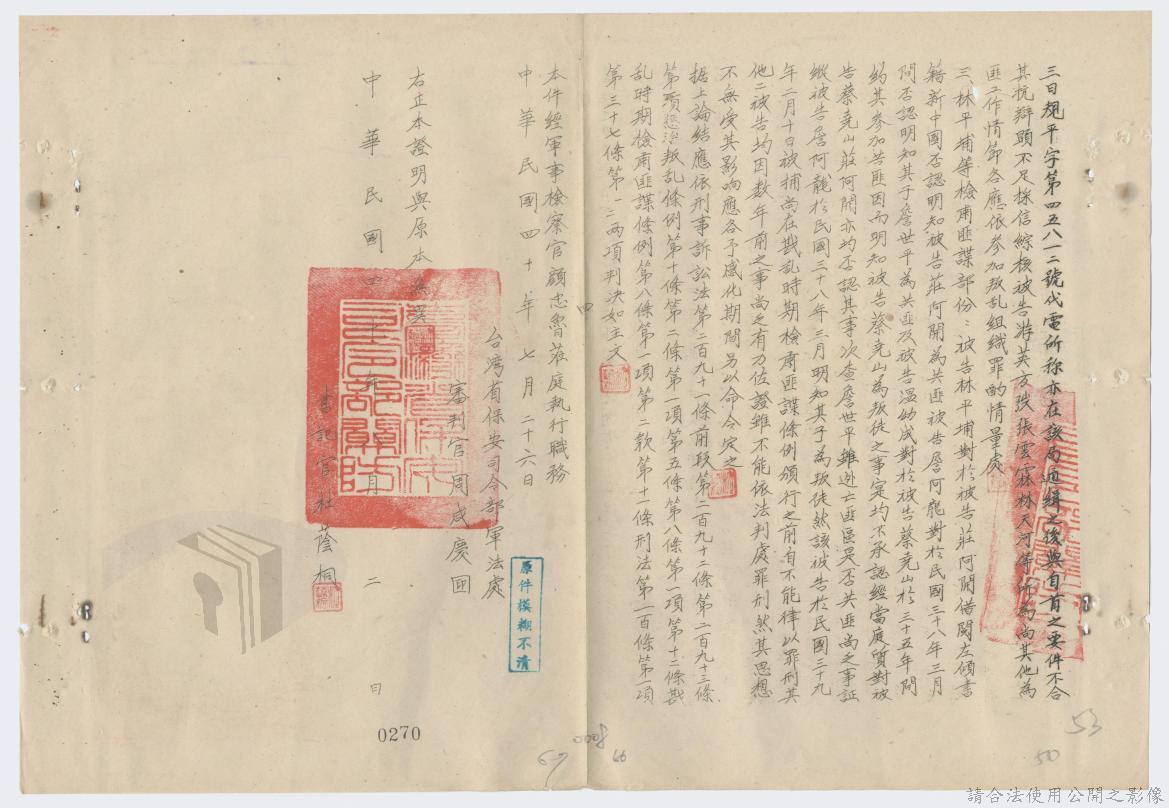 三日規平字第四五八一二號代電所称亦在該局通緝之後與自首之要件不合
其抗辯顯不足採信綜核被告游英 張雲霖林天河等所為尚其他為
匪工作情節各應依參加叛乱組織罪酌情量處
三、林平埔等檢肅匪諜部份：被告林平埔對於被告莊阿開借閱左傾書
籍新中國否認明知被告莊阿開為共匪被告詹阿龍對於民國三十八年三月
間否認明知其子詹世平為共匪及被告温幼成對於被告蔡堯山於三十五年間
約其參加共匪因而明知被告蔡堯山為叛徒之事寔均不承認經當庭質對被
告蔡堯山莊阿開亦均否認其事次查詹世平雖逃亡匪區是否共匪尚乏事証
縱被告詹阿龍於民國三十八年三月明知其子為叛徒然該被告於民國三十九
年二月十日被捕尚在戡乱時期檢肅匪諜條例頒行之前自不能律以罪刑其
他二被告均因数年前之事尚乏有力佐證雖不能依法判處罪刑然其思想
不無受其影响應各予感化期間另以命令定之
据上論結應依刑事訴訟法第二百九十一條前段第二百九十二條第二百九十三條
第 懲治叛乱條例第十條第二條第一項第五條第八條第一項第十二條戡
乱時期檢肅匪諜條例第八條第一項第二款第十一條刑法第一百條第一項
第三十七條第一二兩項判決如主文
四
本件經軍事檢察官顧忠魯蒞庭執行職務
中華民國四十年七月二十六日
台湾省保安司令部軍法處
審判官周咸慶
右正本證明與原本無異
書記官杜蔭桐
中華民國四十年 月二 日
原件模糊不清
0270
0008
67
66
53
50
請合法使用公開之影像